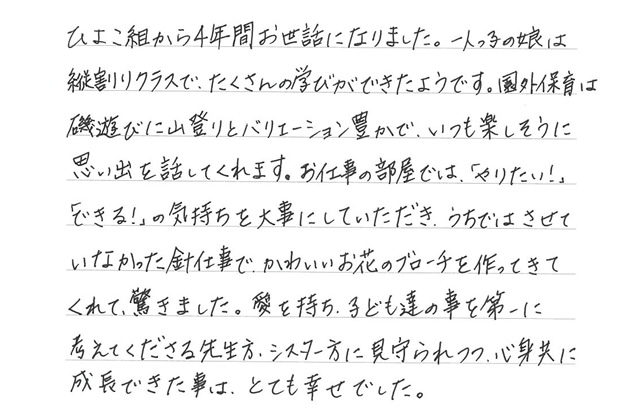 ひよこ組から4年間お世話になりました。一人っ子の娘は
縦割りクラスで、たくさんの学びができたようです。園外保育は
磯遊びに山登りとバリエーション豊かで、いつも楽しそうに
思い出を話してくれます。お仕事の部屋では、「やりたい!」
「できる!」の気持ちを大事にしていただき、うちではさせて
いなかった針仕事で、かわいいお花のブローチを作ってきて
くれて、驚きました。愛を持ち、子ども達の事を第一に
考えてくださる先生方、シスター方に見守られつつ、心身共に
成長できた事は、とても幸せでした。